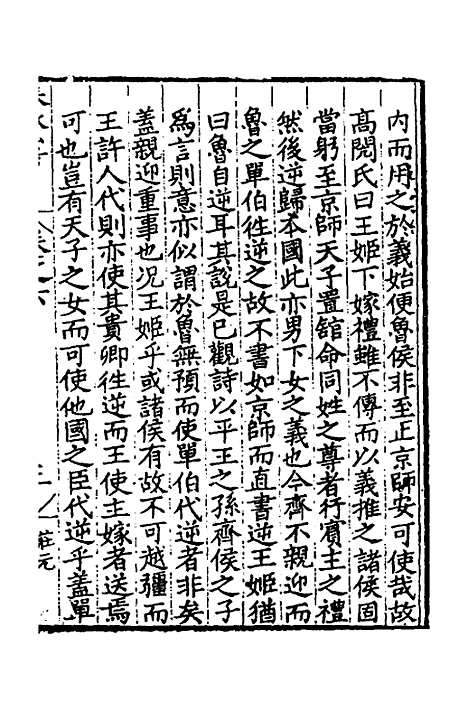 内而用之於義始便魯侯非至正京師安可使哉故
高閌氏曰王姬下嫁禮雖不傳而以義推之諸侯固
當躬至京師天子置舘命同姓之尊者行賓主之禮
然後逆歸本國此亦男下女之義也今齊不親迎而
魯之單伯徃逆之故不書如京師而直書逆王姬猶
曰魯自逆耳其說是已觀詩以平王之孫齊侯之子
爲言則意亦似謂於魯無預而使單伯代逆者非矣
蓋親迎重事也况王姬乎或諸侯有故不可越疆而
王許人代則亦使其貴卿徃逆而王使主嫁者送焉
可也豈有天子之女而可使他國之臣代逆乎蓋單
莊元